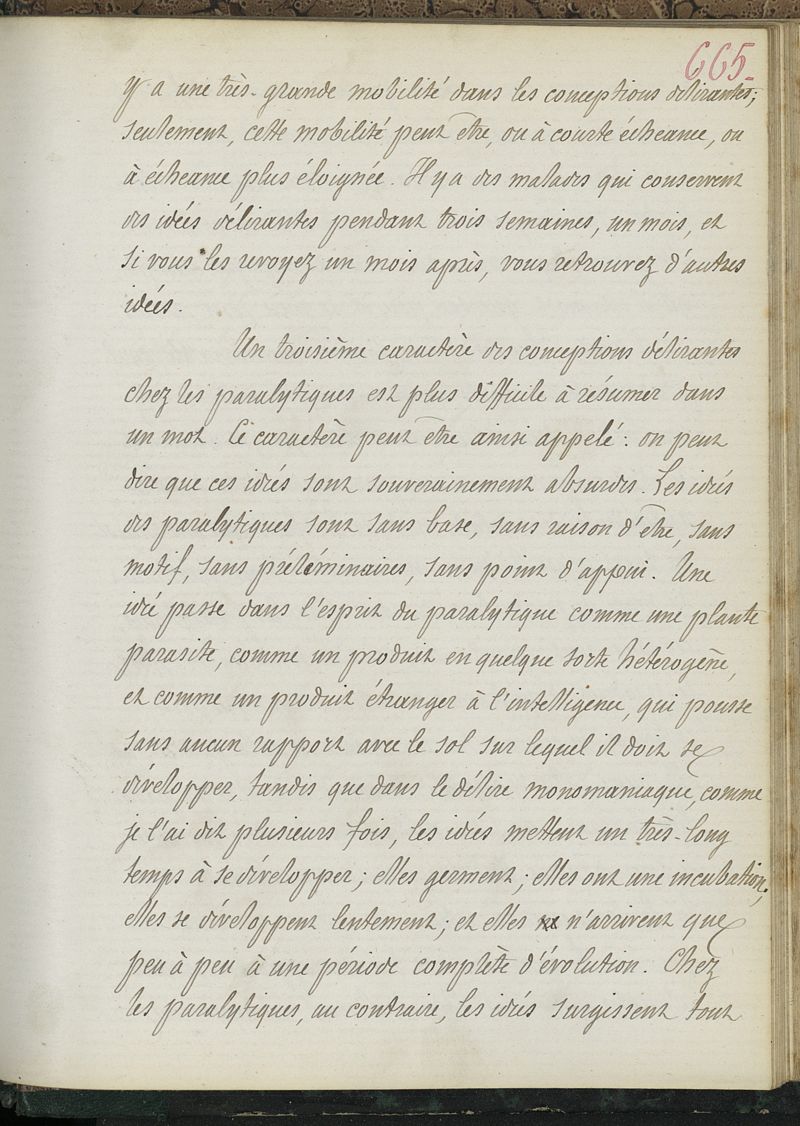 665-
y a une très-grande mobilité dans les conceptions délirantes;
seulement, cette mobilité peut être, ou à courte échéance, ou
à échéance plus éloignée. Il y a des malades qui conservent
des idées délirantes pendant trois semaines, un mois, et
si vous les revoyez un mois après, vous retrouvez d'autres
idées.
Un troisième caractère des conceptions délirantes
chez les paralytiques est plus difficile à résumer dans
un mot. Ce caractère peut être ainsi appelé : on peut
dire que ces idées sont souverainement absurdes. Les idées
des paralytiques sont sans base, sans raison d'être, sans
motif, sans préléminaires, sans point d'appui. Une
idée passe dans l'esprit du paralytique comme une plante
parasite, comme un produit en quelque sorte hétérogène,
et comme un produit étranger à l'intelligence, qui pousse
sans aucun rapport avec le sol sur lequel il doit se
développer, tandis que dans le délire monomaniaque, comme
je l'ai dit plusieurs fois, les idées mettent un très-long
temps à se développer; elles germent; elles ont une incubation;
elles se développent lentement; et elles n'arrivent que
peu à peu à une période complète d'évolution. Chez
les paralytiques, au contraire, les idées surgissent tout